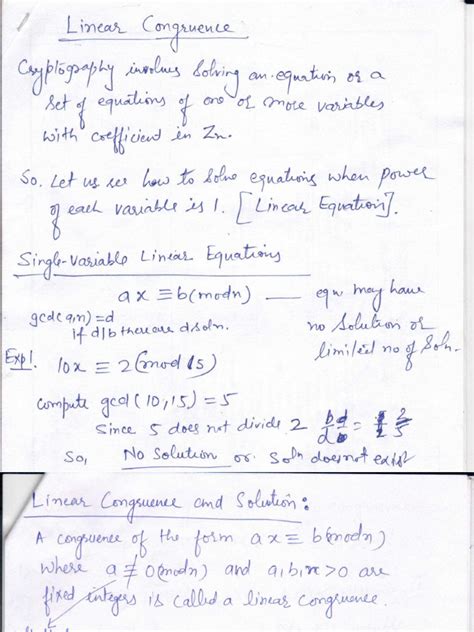 Linear Congruence
Cryptography involves Solving an equation or a
set of equations of one or more variables
with coefficient in Zn.
So. Let us see how to Solve equations when power
of each variable is 1. [Linear Equation].
Single-Variable Linear Equations
ax ≡ b(modn) — eqn may have
no Solution or
limited no of Soln.
gcd(a,n)=d
if d|b there are d soln.
Exp1. 10x ≡ 2(mod 15)
compute gcd(10,15) = 5
Since 5 does not divide 2
2/5
So, No Solution or Soln does not exist
Linear Congruence and Solution:
A congruence of the form ax ≡ b(modn)
where a ≢ 0(modn) and a,b,n>0 are
fixed integers is called a linear congruence.